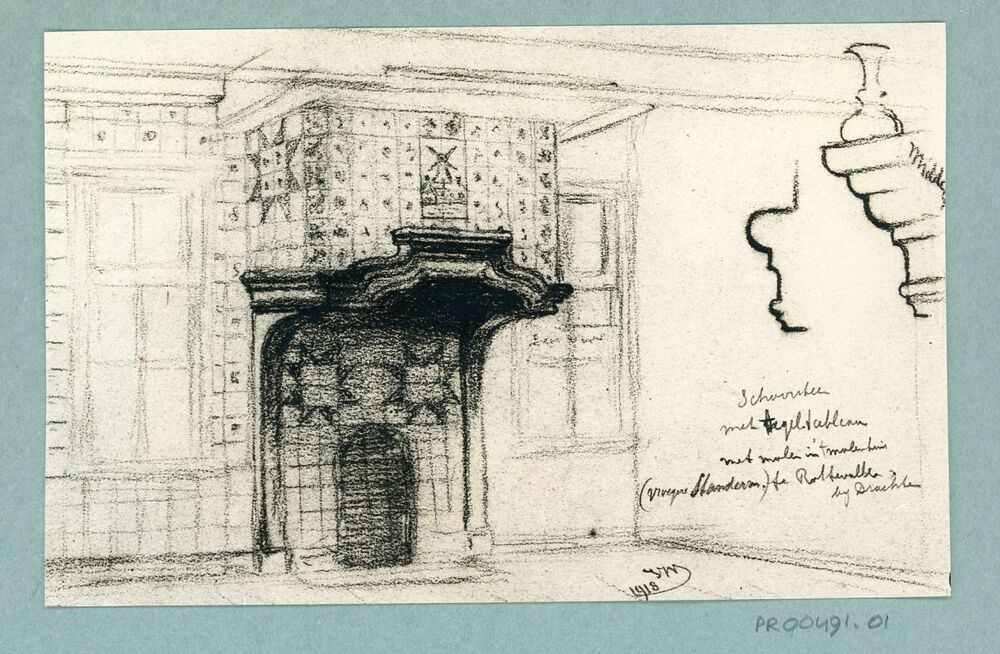 Midde
Schoorsteen
met tegeltableau
met molen in 't molenhuis
(vroegere Standerm.) te Rottevalle
by Drachten
1918
PR00491.01